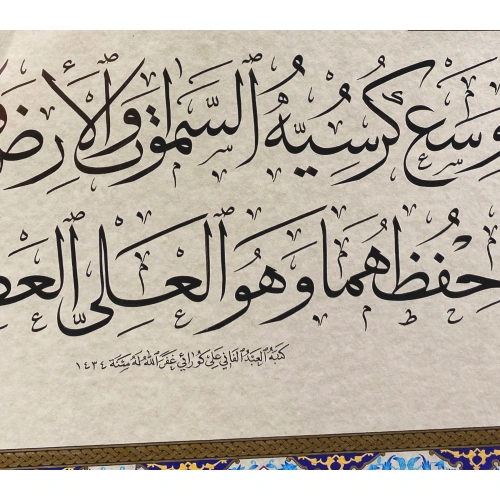 وَسِعَ كُرْسِيُّهُ ٱلسَّمٰوٰتِ وَٱلْأَرْضَ
حِفْظُهُمَا وَهُوَ ٱلْعَلِىُّ ٱلْعَظ
كتبه العبد الفاني علي كوراني غفر الله له سنة ١٤٣٤